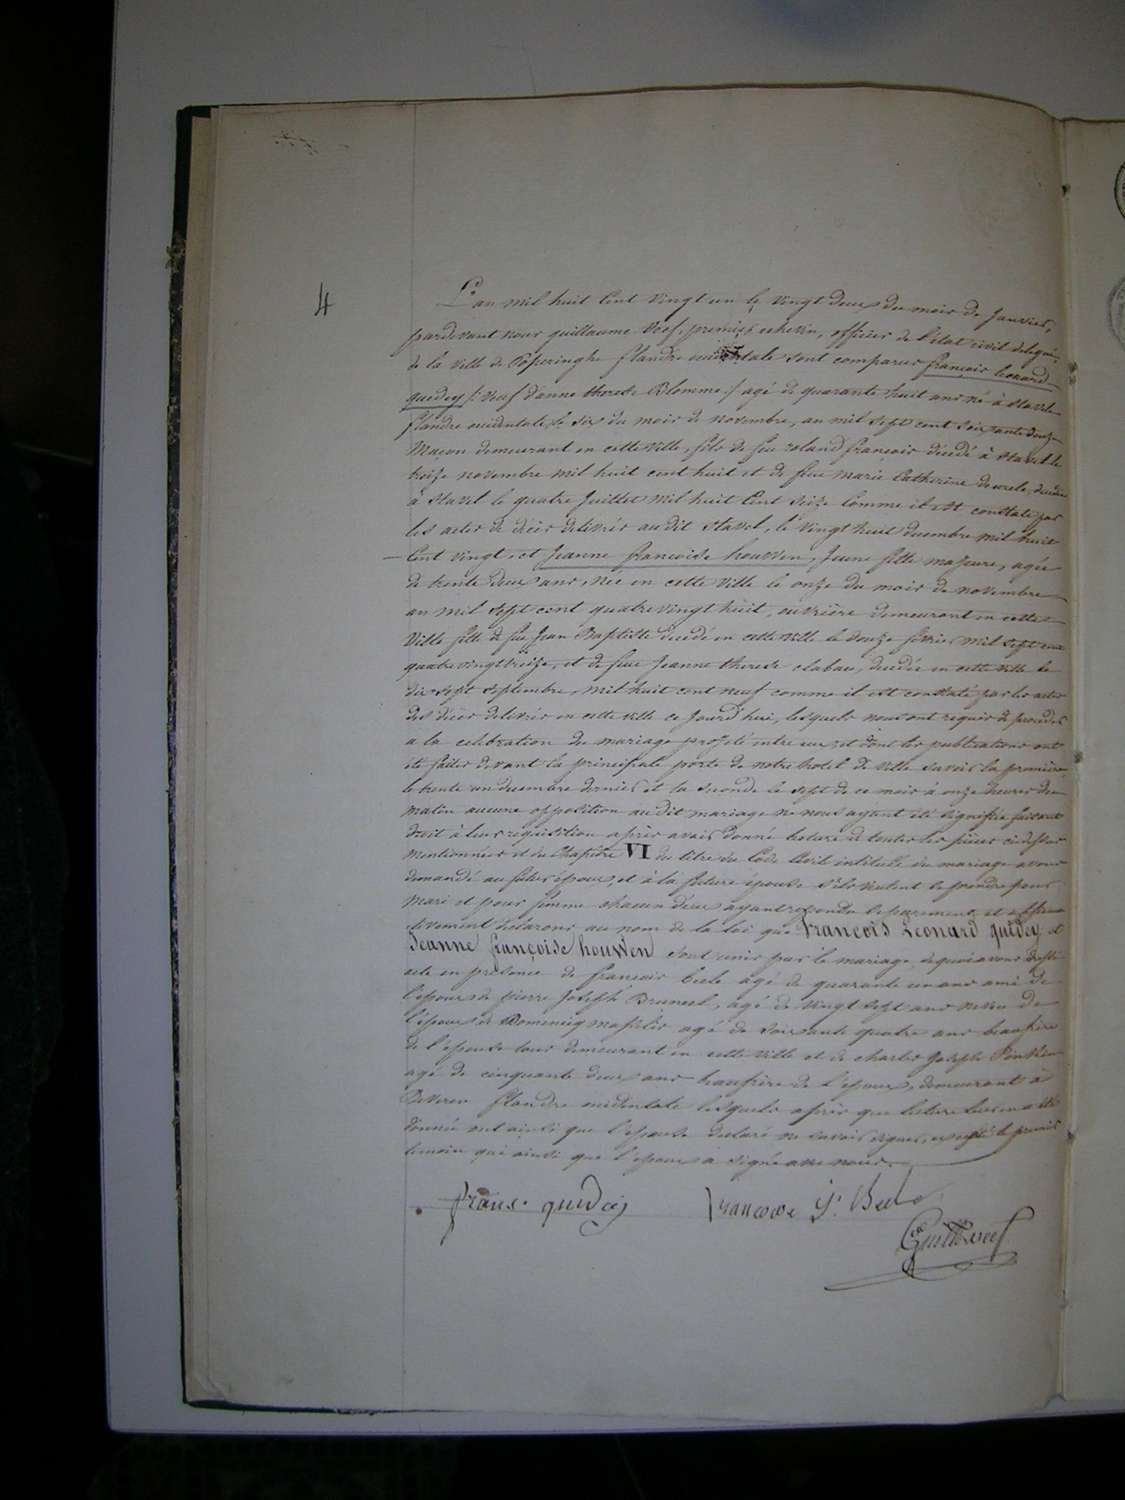 4
L'an mil huit Cent vingt un le vingt deux du mois de Janvier,
pardevant nous guillaume Veef, premier echevin, officier de l'état civil delegué
de la Ville de Poperinghe flandre occidentale sont comparus françois Leonard
quidey /: Veuf d'anne therese Blomme :/ agé de quarante huit ans né à Stavele
flandre occidentale, le six du mois de novembre, an mil sept cent soixante douze
Maçon demeurant en cette Ville, fils de feu roland francois décédé à Stavel le
treize novembre mil huit cent huit et de feue marie Catherine decedée
à Stavel le quatre Juillet mil huit Cent Seize Comme il est constaté par
les actes de décès delivrés au dit Stavel, le vingt huit decembre mil huit
Cent vingt, et Jeanne françoise houwen, Jeune fille majeure, agée
de trente deux ans, née en cette Ville le onze du mois de novembre
an mil sept cent quatre vingt huit, ouvrière demeurant en cette
Ville fille de feu Jean Baptiste décédé en cette Ville le douze fevrier mil sept cent
quatre vingt treize, et de feue Jeanne therese clabau, decedée en cette Ville le
dix sept Septembre, mil huit cent neuf comme il est constaté par les actes
des décès delivrés en cette Ville ce Jourd'hui, lesquels nous ont requis de proceder
a la celebration du mariage projeté entre eux, et dont les publications ont
été faites devant la principale porte de notre hotel de Ville savoir la première
le trente un decembre dernier et la seconde le sept de ce mois à onze heures du
matin aucune opposition au dit mariage ne nous ayant été signifiée faisant
droit à leur requisition après avoir donné lecture de toutes les pieces ci dessus
mentionnées et du Chapitre VI du titre du Code Civil intitulé du mariage avons
demandé au futur époux, et à la future épouse s'ils veulent se prendre pour
mari et pour femme chacun d'eux ayant repondu separement et affirma
tivement declarons au nom de la loi que François Leonard quidey et
Jeanne françoise houwen sont unis par le mariage, de quoi avons dressé
acte en présence de françois Beele agé de quarante un ans ami de
l'epoux de Pierre Joseph Bruneel, agé de vingt sept ans neveu de
l'époux de Domenicq agé de soixante quatre ans beaufrère
de l'epouse tous demeurant en cette Ville et de charles Joseph
agé de cinquante deux ans beaufrère de l'epoux, demeurant à
Beveren flandre occidentale lesquels après que lecture leur en a été
donnée ont ainsi que l'epouse declaré ne savoir signer, excepté le premier
temoin qui ainsi que l'epoux a signé avec nous.
frans. quidey
francois Beele
Guill Veef